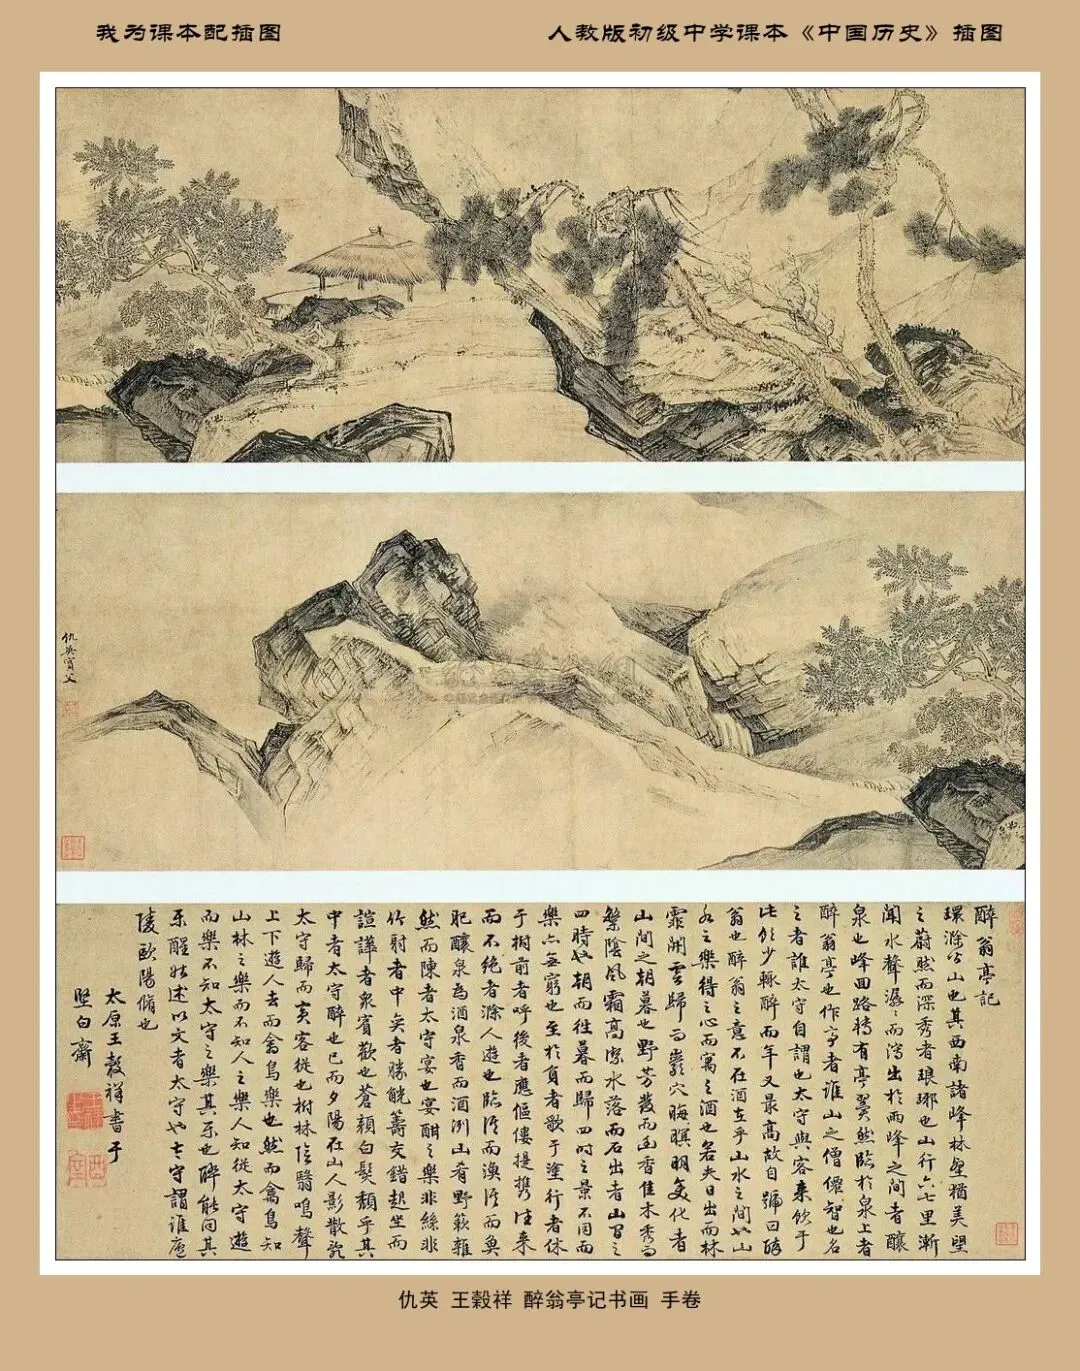 我为课本配插图
人教版初级中学课本《中国历史》插图
仇英實父
醉翁亭記
環滁皆山也其西南諸峰林壑猶美望
之蔚然而深秀者琅琊也山行六七里漸
聞水聲潺〻而瀉出於兩峰之間者釀
泉也峰回路轉有亭翼然臨於泉上者
醉翁亭也作亭者誰山之僧僊智也名
之者誰太守自謂也太守與客来飲于
此飲少輒醉而年又最高故自號曰醉
翁也醉翁之意不在酒在乎山水之間也山
水之樂得之心而寓之酒也若夫日出而林
霏開雲歸而巖穴晦暝明變化者
山間之朝暮也野芳發而幽香佳木秀而
繁陰風霜高潔水落而石出者山間之
四時也朝而往暮而歸四時之景不同而
樂亦無窮也至於負者歌于塗行者休
于樹前者呼後者應傴僂提携往来
而不絶者滁人遊也臨谿而漁谿而魚
肥釀泉為酒泉香而酒洌山肴野蔌雜
然而陳者太守宴也宴酣之樂非絲非
竹射者中奕者勝觥籌交錯起坐而
諠譁者衆賓歡也蒼顏白髮頹乎其
中者太守醉也已而夕陽在山人影散亂
太守歸而賓客從也樹林陰翳鳴聲
上下遊人去而禽鳥樂也然而禽鳥知
山林之樂而不知人之樂人知從太守遊
而樂不知太守之樂其樂也醉能同其
樂醒能述以文者太守也太守謂誰廬
陵歐陽脩也
太原王榖祥書于
堅白齋
仇英 王榖祥 醉翁亭记书画 手卷